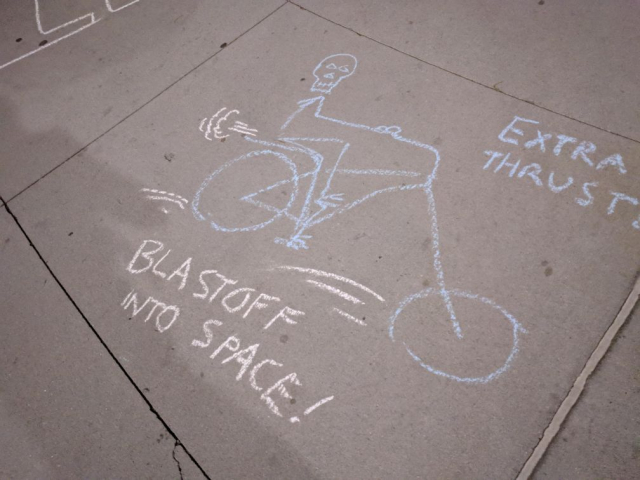 EXTRA
THRUST
BLASTOFF
INTO SPACE!